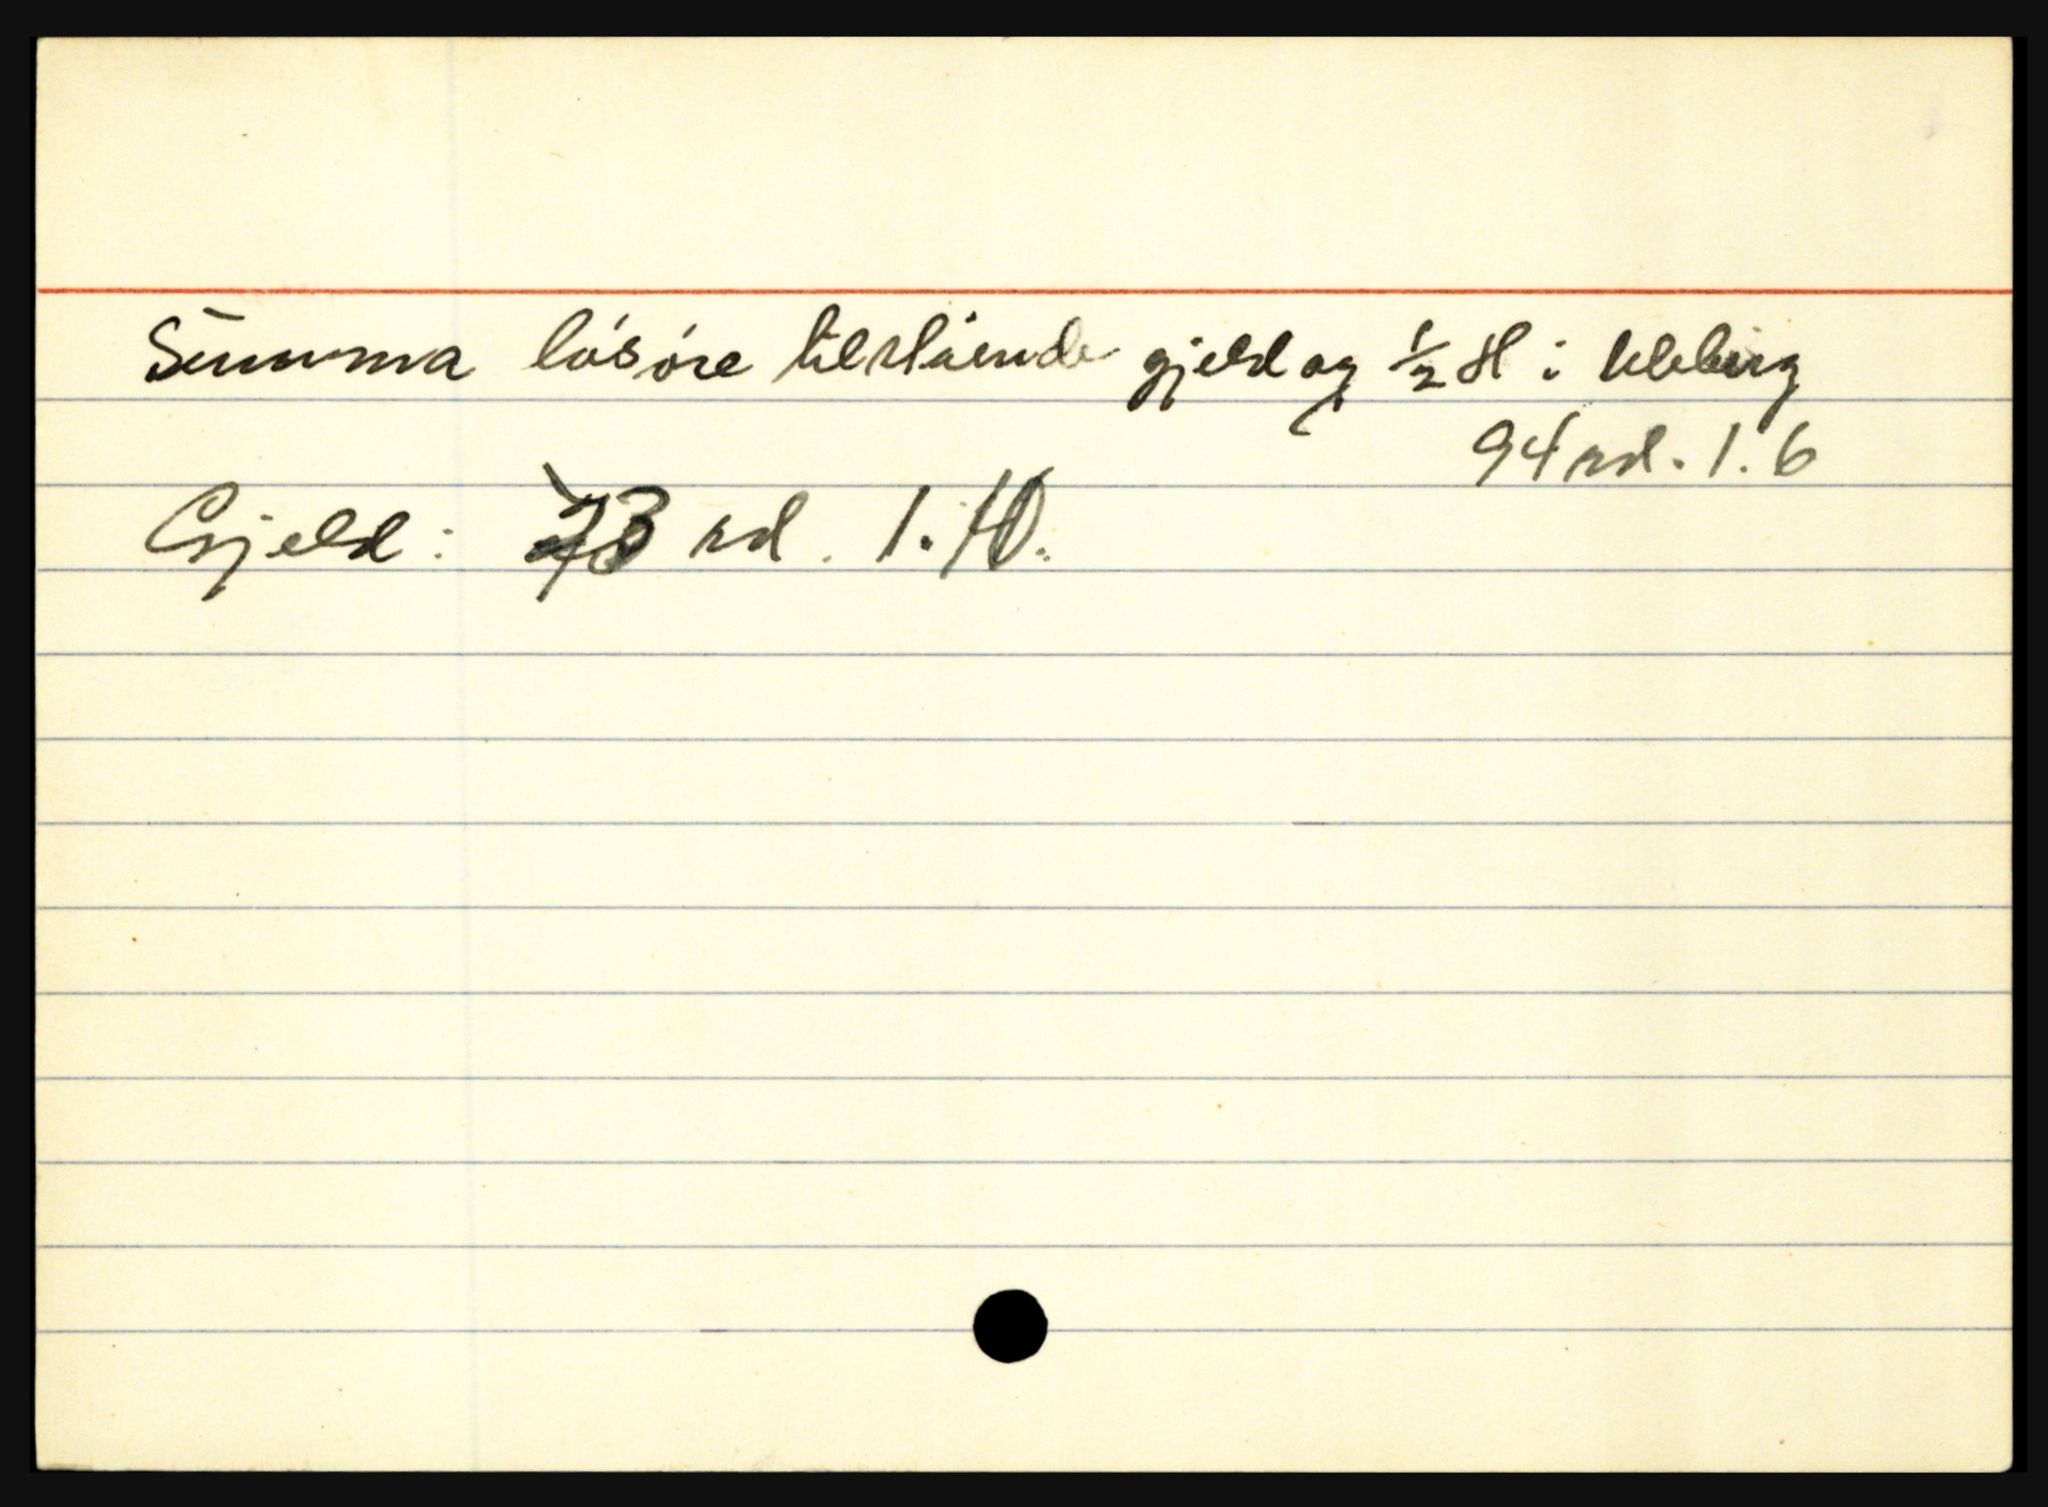 Summa lösöre tilstående gjeld og ½ Hl i
94 rd. 1. 6
Gjeld: 73 rd. 1. 10.